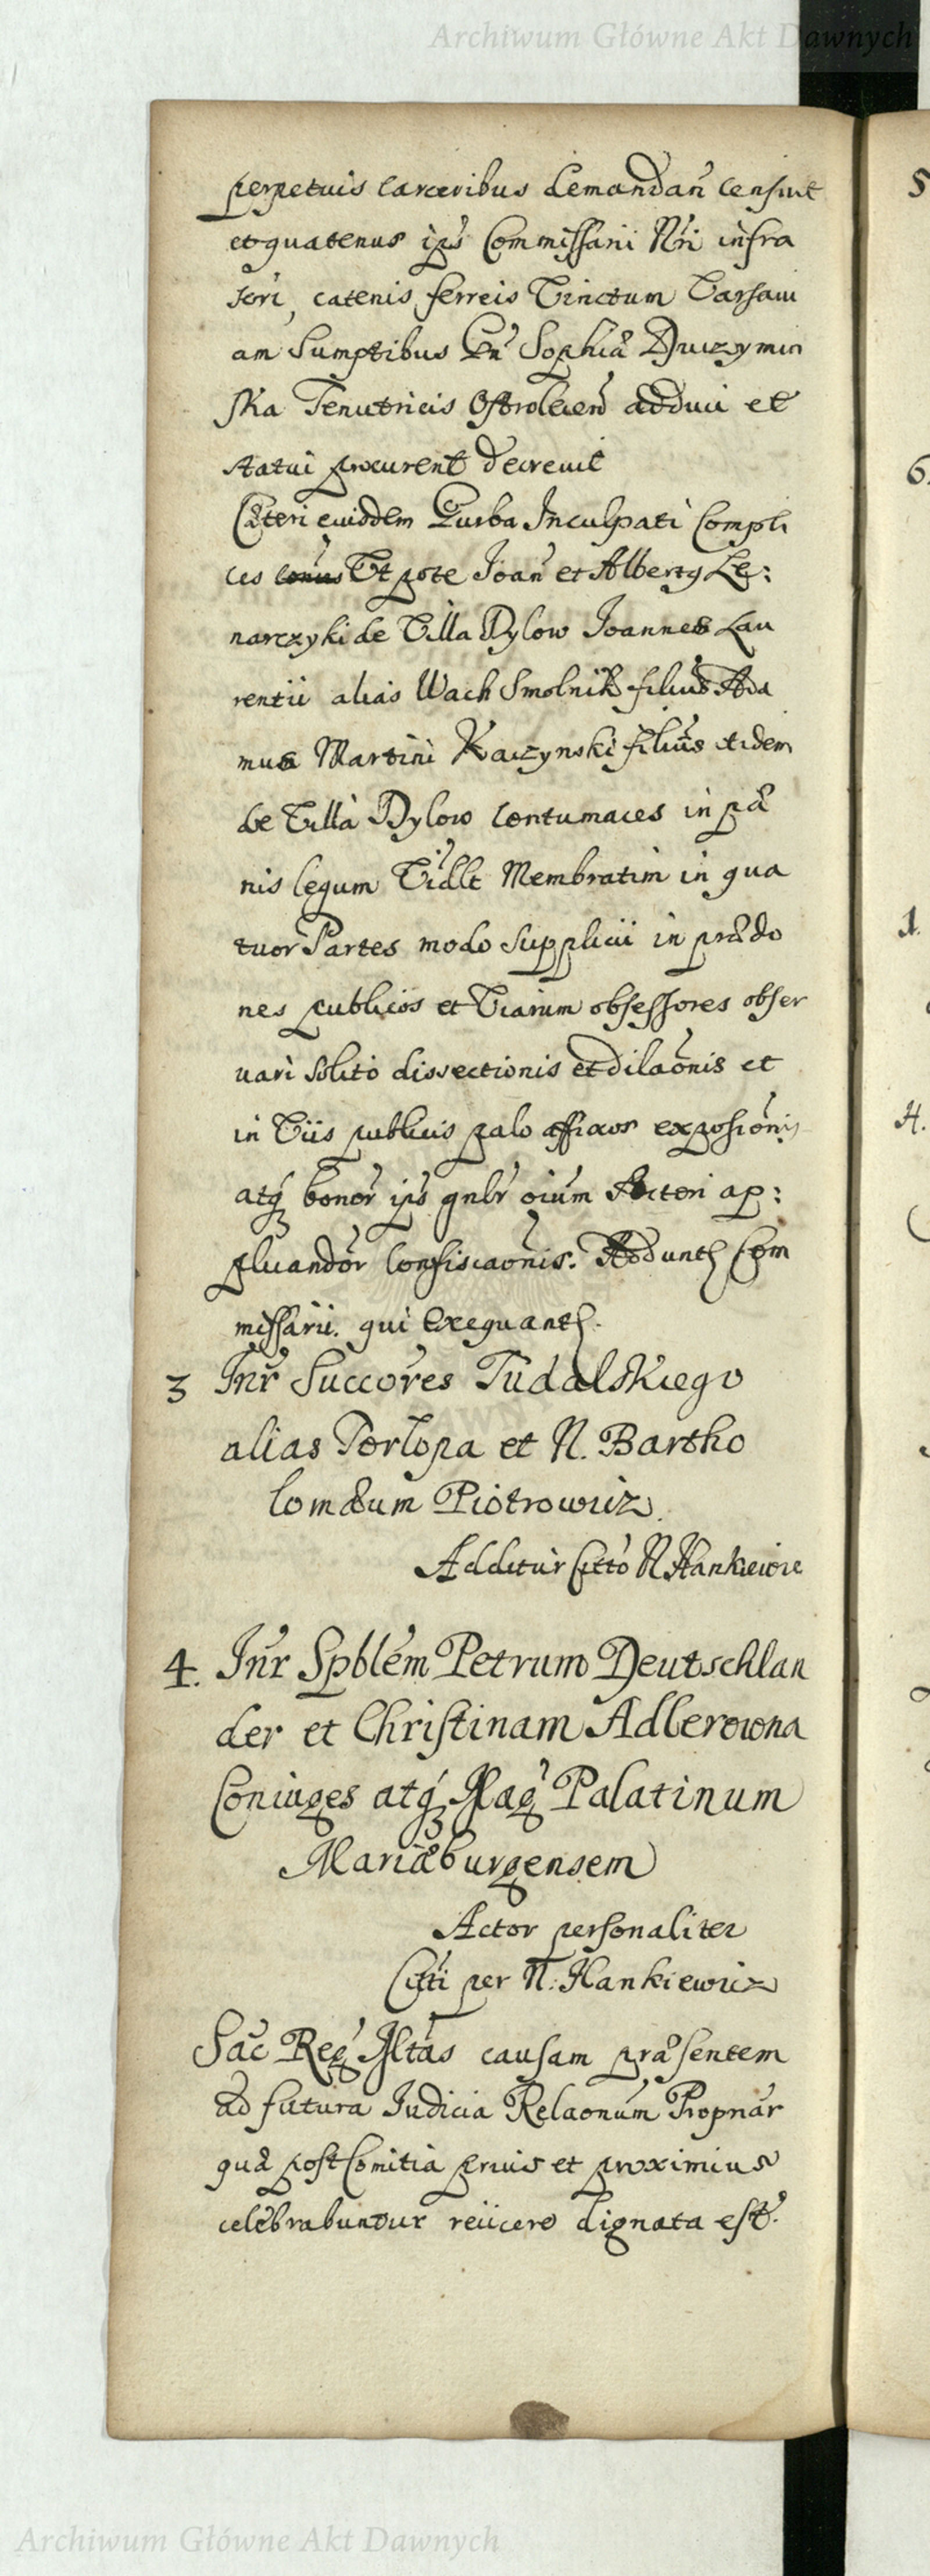 Archiwum Główne Akt Dawnych
perpetuis carceribus demandan̄ censuit
et quatenus ips̄ Commissarii Nr̄i infra
scri, catenis ferreis Vinctum Varsavi
am Sumptibus Gn̄ Sophiæ Duczymin
ska Tenutricis Ostrolecen̄ adduci et
statui procurent decrevit
Cæteri eiusdem Turba Inculpati Compli
ces Ut pote Joan̄ et Albertg Le:
narczyki de Villa Dylow Joannes Lau
rentii alias Wach Smolnik filius Ada
mus Martini Kaczynski filius itidem
de Villa Dylow contumaces in pæ
nis legum Vidlt Membratim in qua
tuor Partes modo supplicii in prædo
nes publicos et Viarum obsessores obser
vari solito dissectionis et dilaōnis et
in Viis publicis palo affixos exposiōnis
atq bonor̄ ips̄ gnlr oīum Actori ap:
plicandor̄ Confiscaōnis. Addunt Com
missarii. qui Exequant.
3 Inr̄ Succōres Tudalskiego
alias Portopa et N. Bartho
lomæum Piotrowicz.
Additur Citto N Hankiewic
4. Inr̄ Spblēm Petrum Deutschlan
der et Christinam Adlerowna
Coniuges atq Mag Palatinum
Mariæburgensem
Actor personaliter
Citti per N. Hankiewicz
Sac̄ Reg Mtas causam præsentem
ad futura Judicia Relaonum Propriar̄
quæ post Comitia prius et proximius
celebrabuntur reiicere dignata est.
5
6.
1.
4.
Archiwum Główne Akt Dawnych